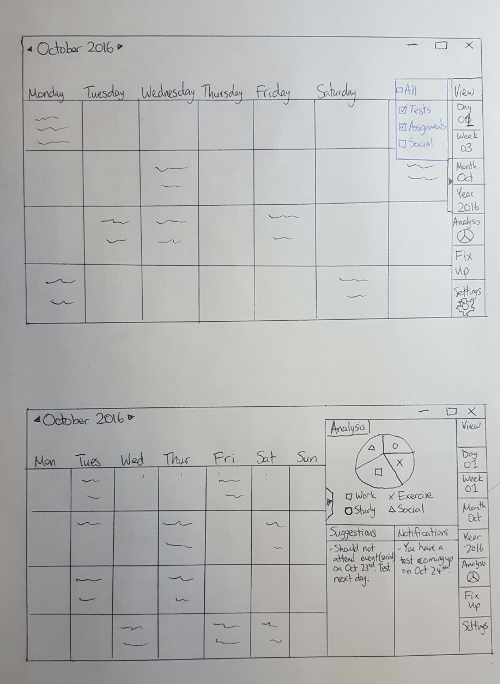 ◂ October 2016 ▸
Monday Tuesday Wednesday Thursday Friday Saturday
All
Tests
Assignments
Social
View
Day
01
Week
03
Month
Oct
Year
2016
Analysis
Fix
Up
Settings
◂ October 2016 ▸
Mon Tues Wed Thur Fri Sat Sun
Analysis
□ Work x Exercise
○ Study △ Social
Suggestions
- Should not
attend event(social)
on Oct 23rd. Test
next day.
Notifications
- You have a
test coming up
on Oct 24th.
View
Day
01
Week
01
Month
Oct
Year
2016
Analysis
Fix
Up
Settings